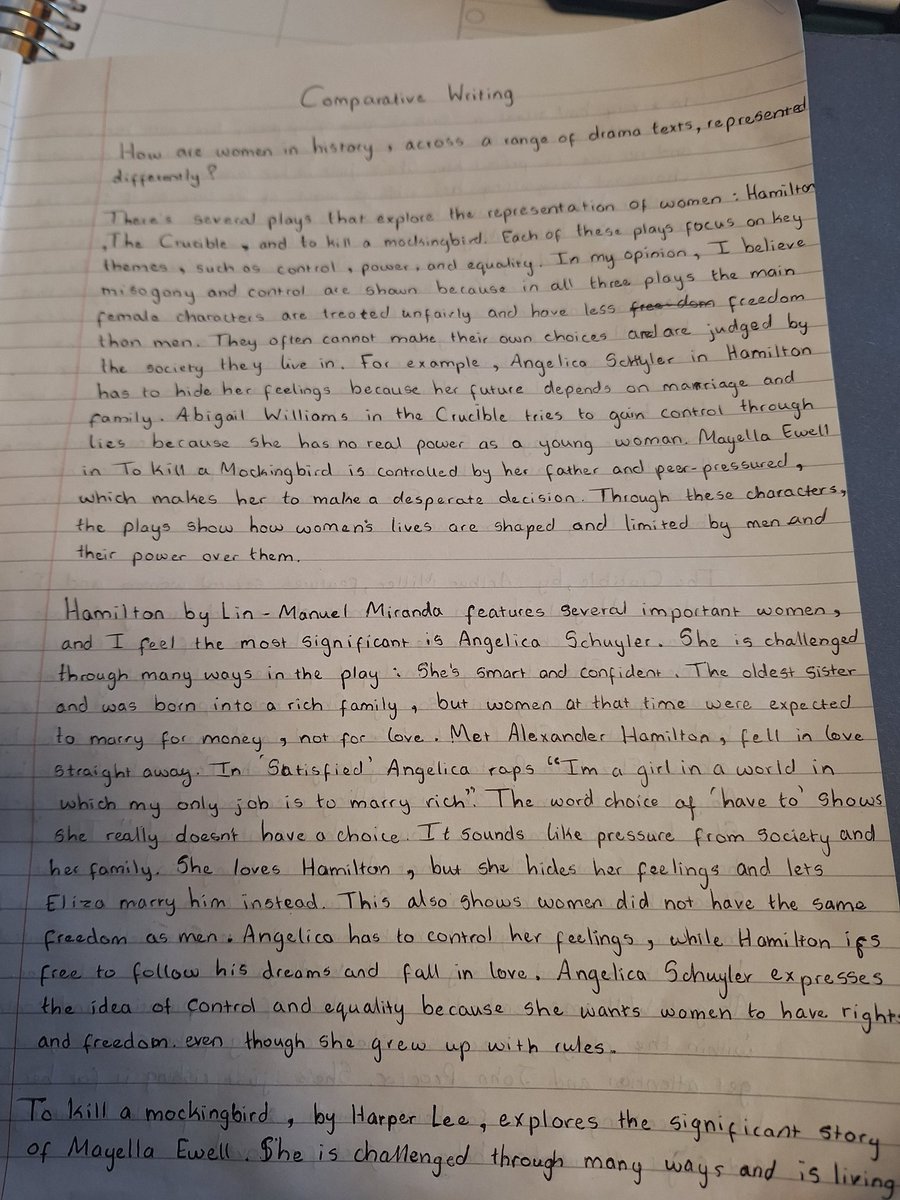 Comparative Writing
How are women in history, across a range of drama texts, represented
differently?
There's several plays that explore the representation of women: Hamilton
,The Crucible, and to kill a mockingbird. Each of these plays focus on key
themes, such as control, power, and equality. In my opinion, I believe
misogony and control are shown because in all three plays the main
female characters are treated unfairly and have less free dom freedom
than men. They often cannot make their own choices and are judged by
the society they live in. For example, Angelica Schyler in Hamilton
has to hide her feelings because her future depends on marriage and
family. Abigail Williams in the Crucible tries to gain control through
lies because she has no real power as a young woman. Mayella Ewell
in To Kill a Mockingbird is controlled by her father and peer-pressured,
which makes her to make a desperate decision. Through these characters,
the plays show how women's lives are shaped and limited by men and
their power over them.
Hamilton by Lin-Manuel Miranda features several important women,
and I feel the most significant is Angelica Schuyler. She is challenged
through many ways in the play: She's smart and confident. The oldest sister
and was born into a rich family, but women at that time were expected
to marry for money, not for love. Met Alexander Hamilton, fell in love
straight away. In 'Satisfied' Angelica raps "Im a girl in a world in
which my only job is to marry rich". The word choice of 'have to' shows
she really doesnt have a choice. It sounds like pressure from society and
her family. She loves Hamilton, but she hides her feelings and lets
Eliza marry him instead. This also shows women did not have the same
freedom as men. Angelica has to control her feelings, while Hamilton is
free to follow his dreams and fall in love. Angelica Schuyler expresses
the idea of control and equality because she wants women to have rights
and freedom. even though she grew up with rules.
To kill a mockingbird, by Harper Lee, explores the significant story
of Mayella Ewell. She is challenged through many ways and is living